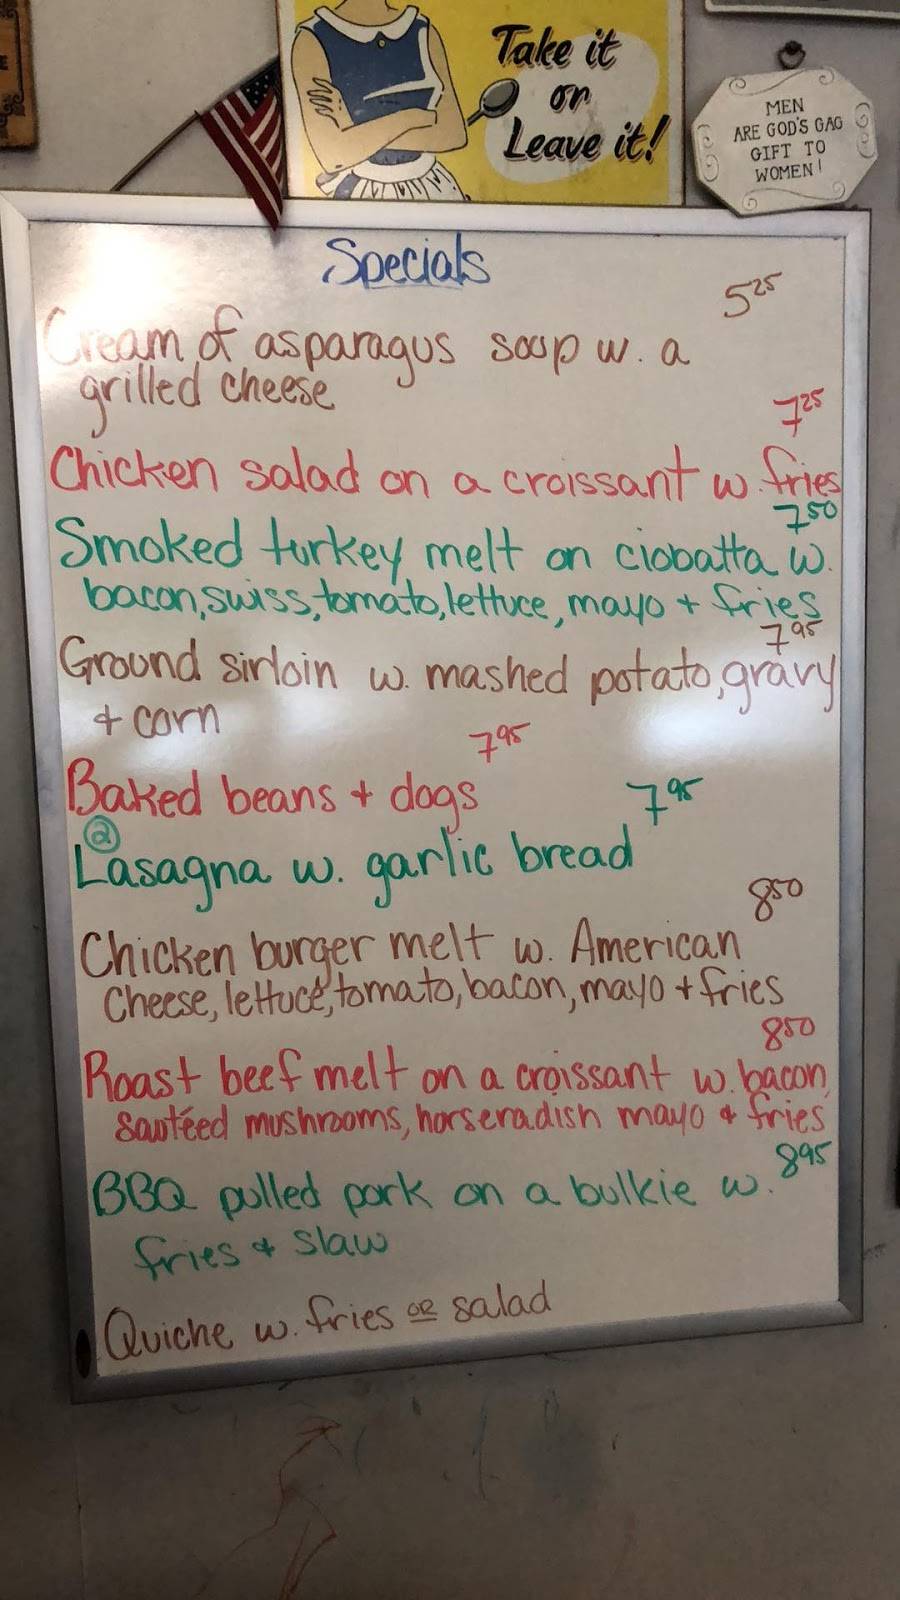 Take it
or
Leave it!
MEN
ARE GOD'S GAG
GIFT TO
WOMEN!
Specials
5 25
Cream of asparagus soup w. a
grilled cheese
7 25
Chicken salad on a croissant w. fries
7 50
Smoked turkey melt on ciobatta w.
bacon, swiss, tomato, lettuce, mayo + fries
7 95
Ground sirloin w. mashed potato, gravy
+ corn
7 95
Baked beans + dogs
7 95
②
Lasagna w. garlic bread
8 50
Chicken burger melt w. American
cheese, lettuce, tomato, bacon, mayo + fries
8 50
Roast beef melt on a croissant w. bacon,
sautéed mushrooms, horseradish mayo + fries
8 95
BBQ pulled pork on a bulkie w.
fries + slaw
Quiche w. fries OR salad